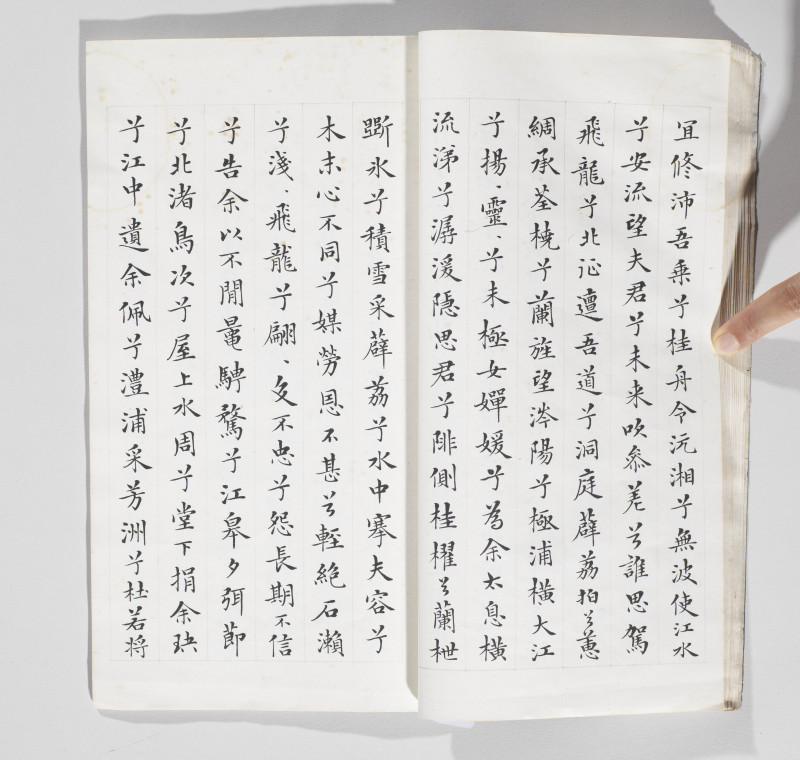 宜修沛吾乗兮桂舟令沅湘兮無波使江水
兮安流望夫君兮未来吹參差兮誰思駕
飛龍兮北征邅吾道兮洞庭薜荔拍兮蕙
綢承荃橈兮蘭旌望涔陽兮極浦橫大江
兮揚、靈、兮未極女嬋媛兮為余太息橫
流涕兮潺湲隱思君兮陫側桂櫂兮蘭枻
斲氷兮積雪采薜荔兮水中搴夫容兮
木末心不同兮媒勞恩不甚兮輕絶石瀨
兮淺、飛龍兮翩、交不忠兮怨長期不信
兮告余以不閒鼂騁騖兮江皋夕弭節
兮北渚鳥次兮屋上水周兮堂下捐余玦
兮江中遺余佩兮澧浦采芳洲兮杜若将